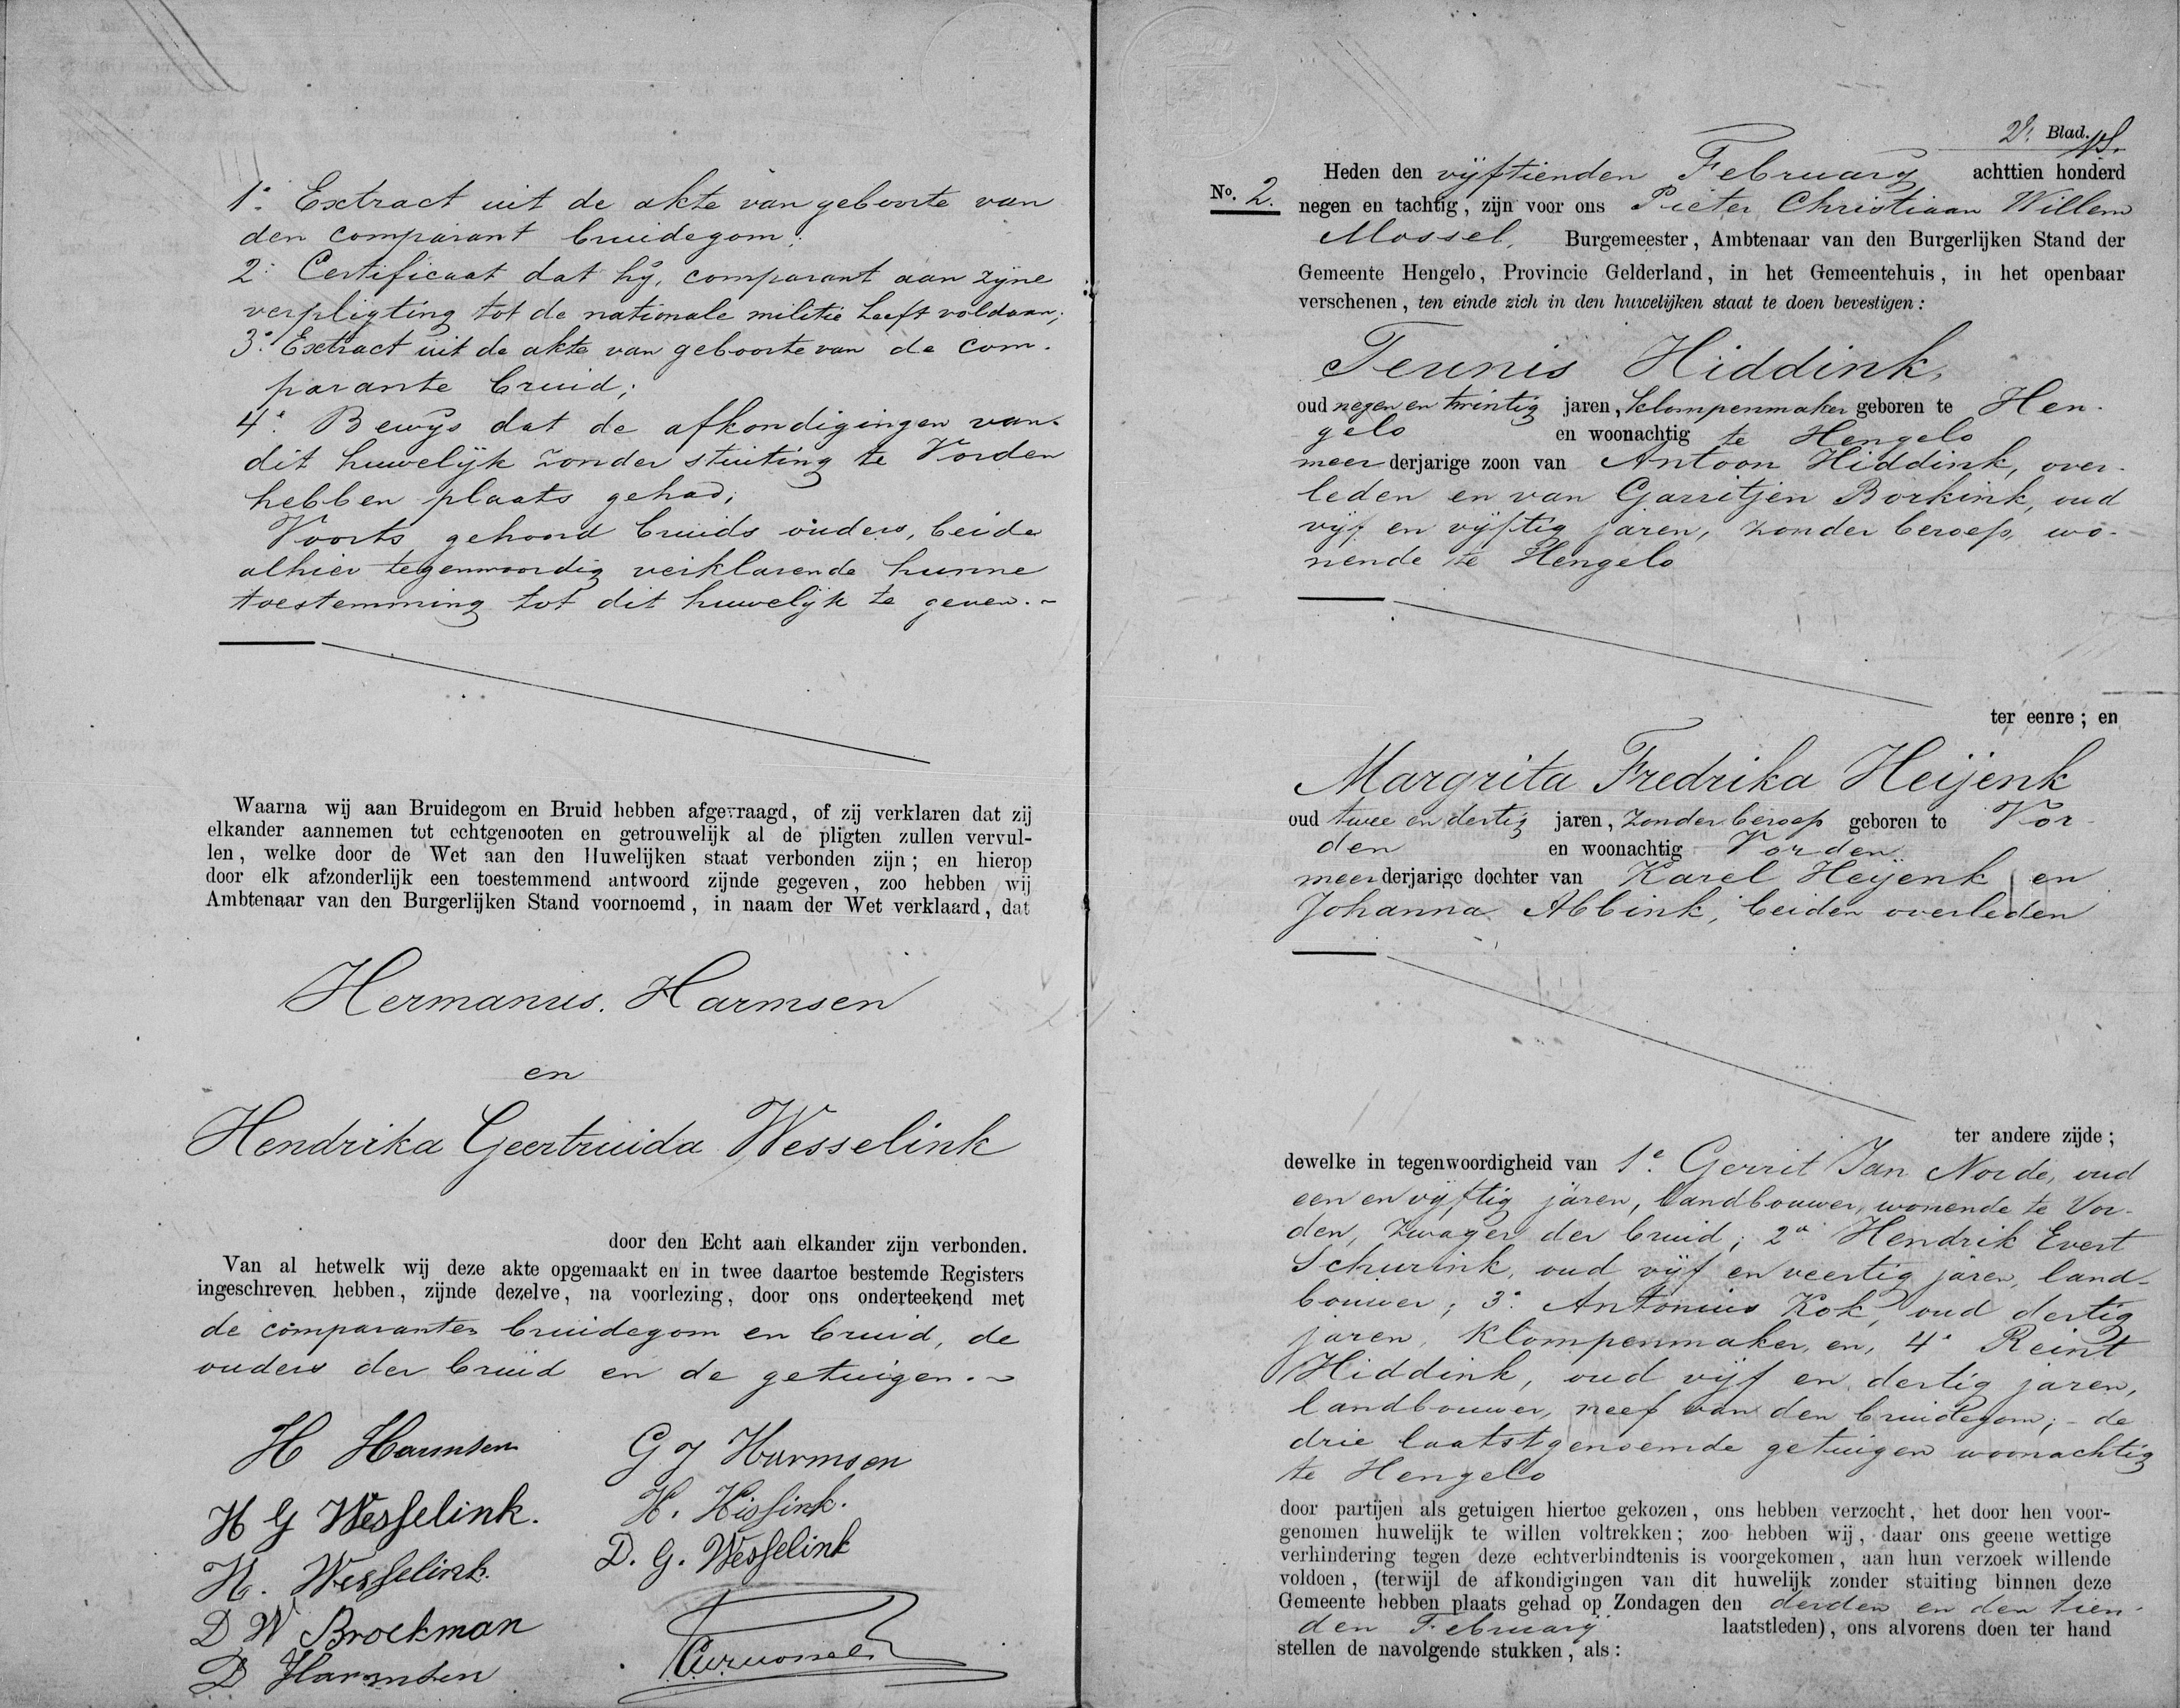 1°. Extract uit de akte van geboorte van
den comparant bruidegom;
2° Certificaat dat hij, comparant aan zijne
verpligting tot de nationale militie heeft voldaan;
3°. Extract uit de akte van geboorte van de com-
parante bruid;
4°. Bewijs dat de afkondigingen van
dit huwelijk zonder stuiting te Vorden
hebben plaats gehad;
Voorts gehoord bruids ouders, beide
alhier tegenwoordig verklarende hunne
toestemming tot dit huwelijk te geven.
Waarna wij aan Bruidegom en Bruid hebben afgevraagd, of zij verklaren dat zij
elkander aannemen tot echtgenooten en getrouwelijk al de pligten zullen vervul-
len, welke door de Wet aan den Huwelijken staat verbonden zijn; en hierop
door elk afzonderlijk een toestemmend antwoord zijnde gegeven, zoo hebben wij
Ambtenaar van den Burgerlijken Stand voornoemd, in naam der Wet verklaard, dat
Hermanus Harmsen
en
Hendrika Geertruida Wesselink
door den Echt aan elkander zijn verbonden.
Van al hetwelk wij deze akte opgemaakt en in twee daartoe bestemde Registers
ingeschreven hebben, zijnde dezelve, na voorlezing, door ons onderteekend met
de comparanten bruidegom en bruid, de
ouders der bruid en de getuigen.
H Harmsen
G J Harmsen
H G Wesselink.
H. Hissink.
H. Wesselink.
D. G. Wesselink
D W Broekman
D Harmsen
2e. Blad.
No. 2.
Heden den vijftienden February achttien honderd
negen en tachtig, zijn voor ons Pieter Christiaan Willem
Mossel, Burgemeester, Ambtenaar van den Burgerlijken Stand der
Gemeente Hengelo, Provincie Gelderland, in het Gemeentehuis, in het openbaar
verschenen, ten einde zich in den huwelijken staat te doen bevestigen:
Teunis Hiddink,
oud negen en twintig jaren, klompenmaker geboren te Hen-
gelo en woonachtig te Hengelo
meerderjarige zoon van Antoon Hiddink, over-
leden en van Garritjen Borkink, oud
vijf en vijftig jaren, zonder beroep, wo-
nende te Hengelo
ter eenre; en
Margrita Fredrika Heijenk
oud twee en dertig jaren, zonder beroep geboren te Vor-
den en woonachtig Vorden
meerderjarige dochter van Karel Heijenk en
Johanna Abbink, beiden overleden
ter andere zijde;
dewelke in tegenwoordigheid van 1e. Gerrit Jan Norde, oud
een en vijftig jaren, landbouwer, wonende te Vor-
den, zwager der bruid; 2e Hendrik Evert
Schurink, oud vijf en veertig jaren, land-
bouwer; 3e. Antonius Kok, oud dertig
jaren, klompenmaker, en, 4e Reint
Hiddink, oud vijf en dertig jaren,
landbouwer, neef van den bruidegom; - de
drie laatstgenoemde getuigen woonachtig
te Hengelo
door partijen als getuigen hiertoe gekozen, ons hebben verzocht, het door hen voor-
genomen huwelijk te willen voltrekken; zoo hebben wij, daar ons geene wettige
verhindering tegen deze echtverbindtenis is voorgekomen, aan hun verzoek willende
voldoen, (terwijl de afkondigingen van dit huwelijk zonder stuiting binnen deze
Gemeente hebben plaats gehad op Zondagen den derden en den tien-
den February laatstleden), ons alvorens doen ter hand
stellen de navolgende stukken, als: